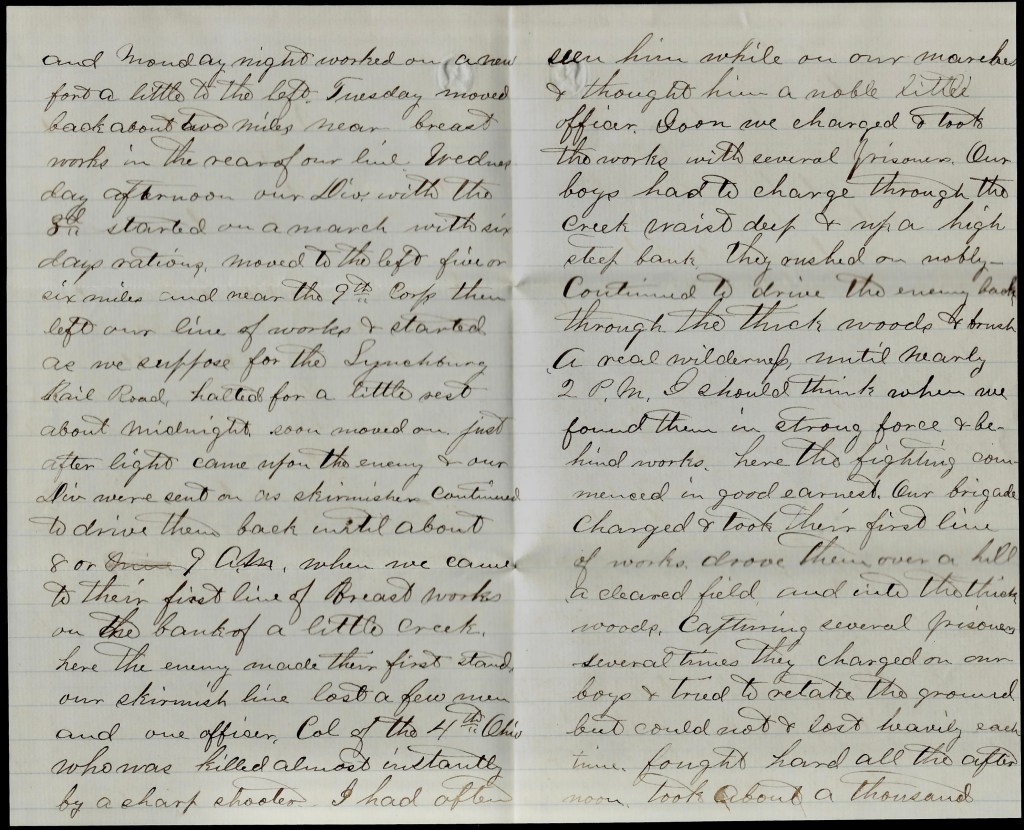 and Monday night worked on a new
fort a little to the left. Tuesday moved
back about two miles near breast
works in the rear of our line. Wednes
day afternoon our Div. with the
3d started on a march with six
days rations, moved to the left five or
six miles and near the 9th Corps then
left our line of works & started
as we suppose for the Lynchburg
Rail Road, halted for a little rest
about midnight. soon moved on. just
after light came upon the enemy & our
Div were sent on as skirmishers continued
to drive them back until about
8 or 9 A.M. when we came
to their first line of Breast works
on the bank of a little creek.
here the enemy made their first stand,
our skirmish line lost a few men
and one officer, Col of the 4th Ohio
who was killed almost instantly
by a sharp shooter. I had often
seen him while on our marches
& thought him a noble little
officer. Soon we charged & took
the works with several prisoners. Our
boys had to charge through the
creek waist deep & up a high
steep bank. they rushed on nobly—
Continued to drive the enemy back
through the thick woods & brush
A real wilderness, until nearly
2 P.M. I should think when we
found them in strong force & be-
hind works. here the fighting com-
menced in good earnest. Our brigade
charged & took their first line
of works. drove them over a hill
a cleared field and into the thick
woods. Capturing several prisoners
several times they charged on our
boys & tried to retake the ground
but could not & lost heavily each
time. fought hard all the after
noon. took about a thousand